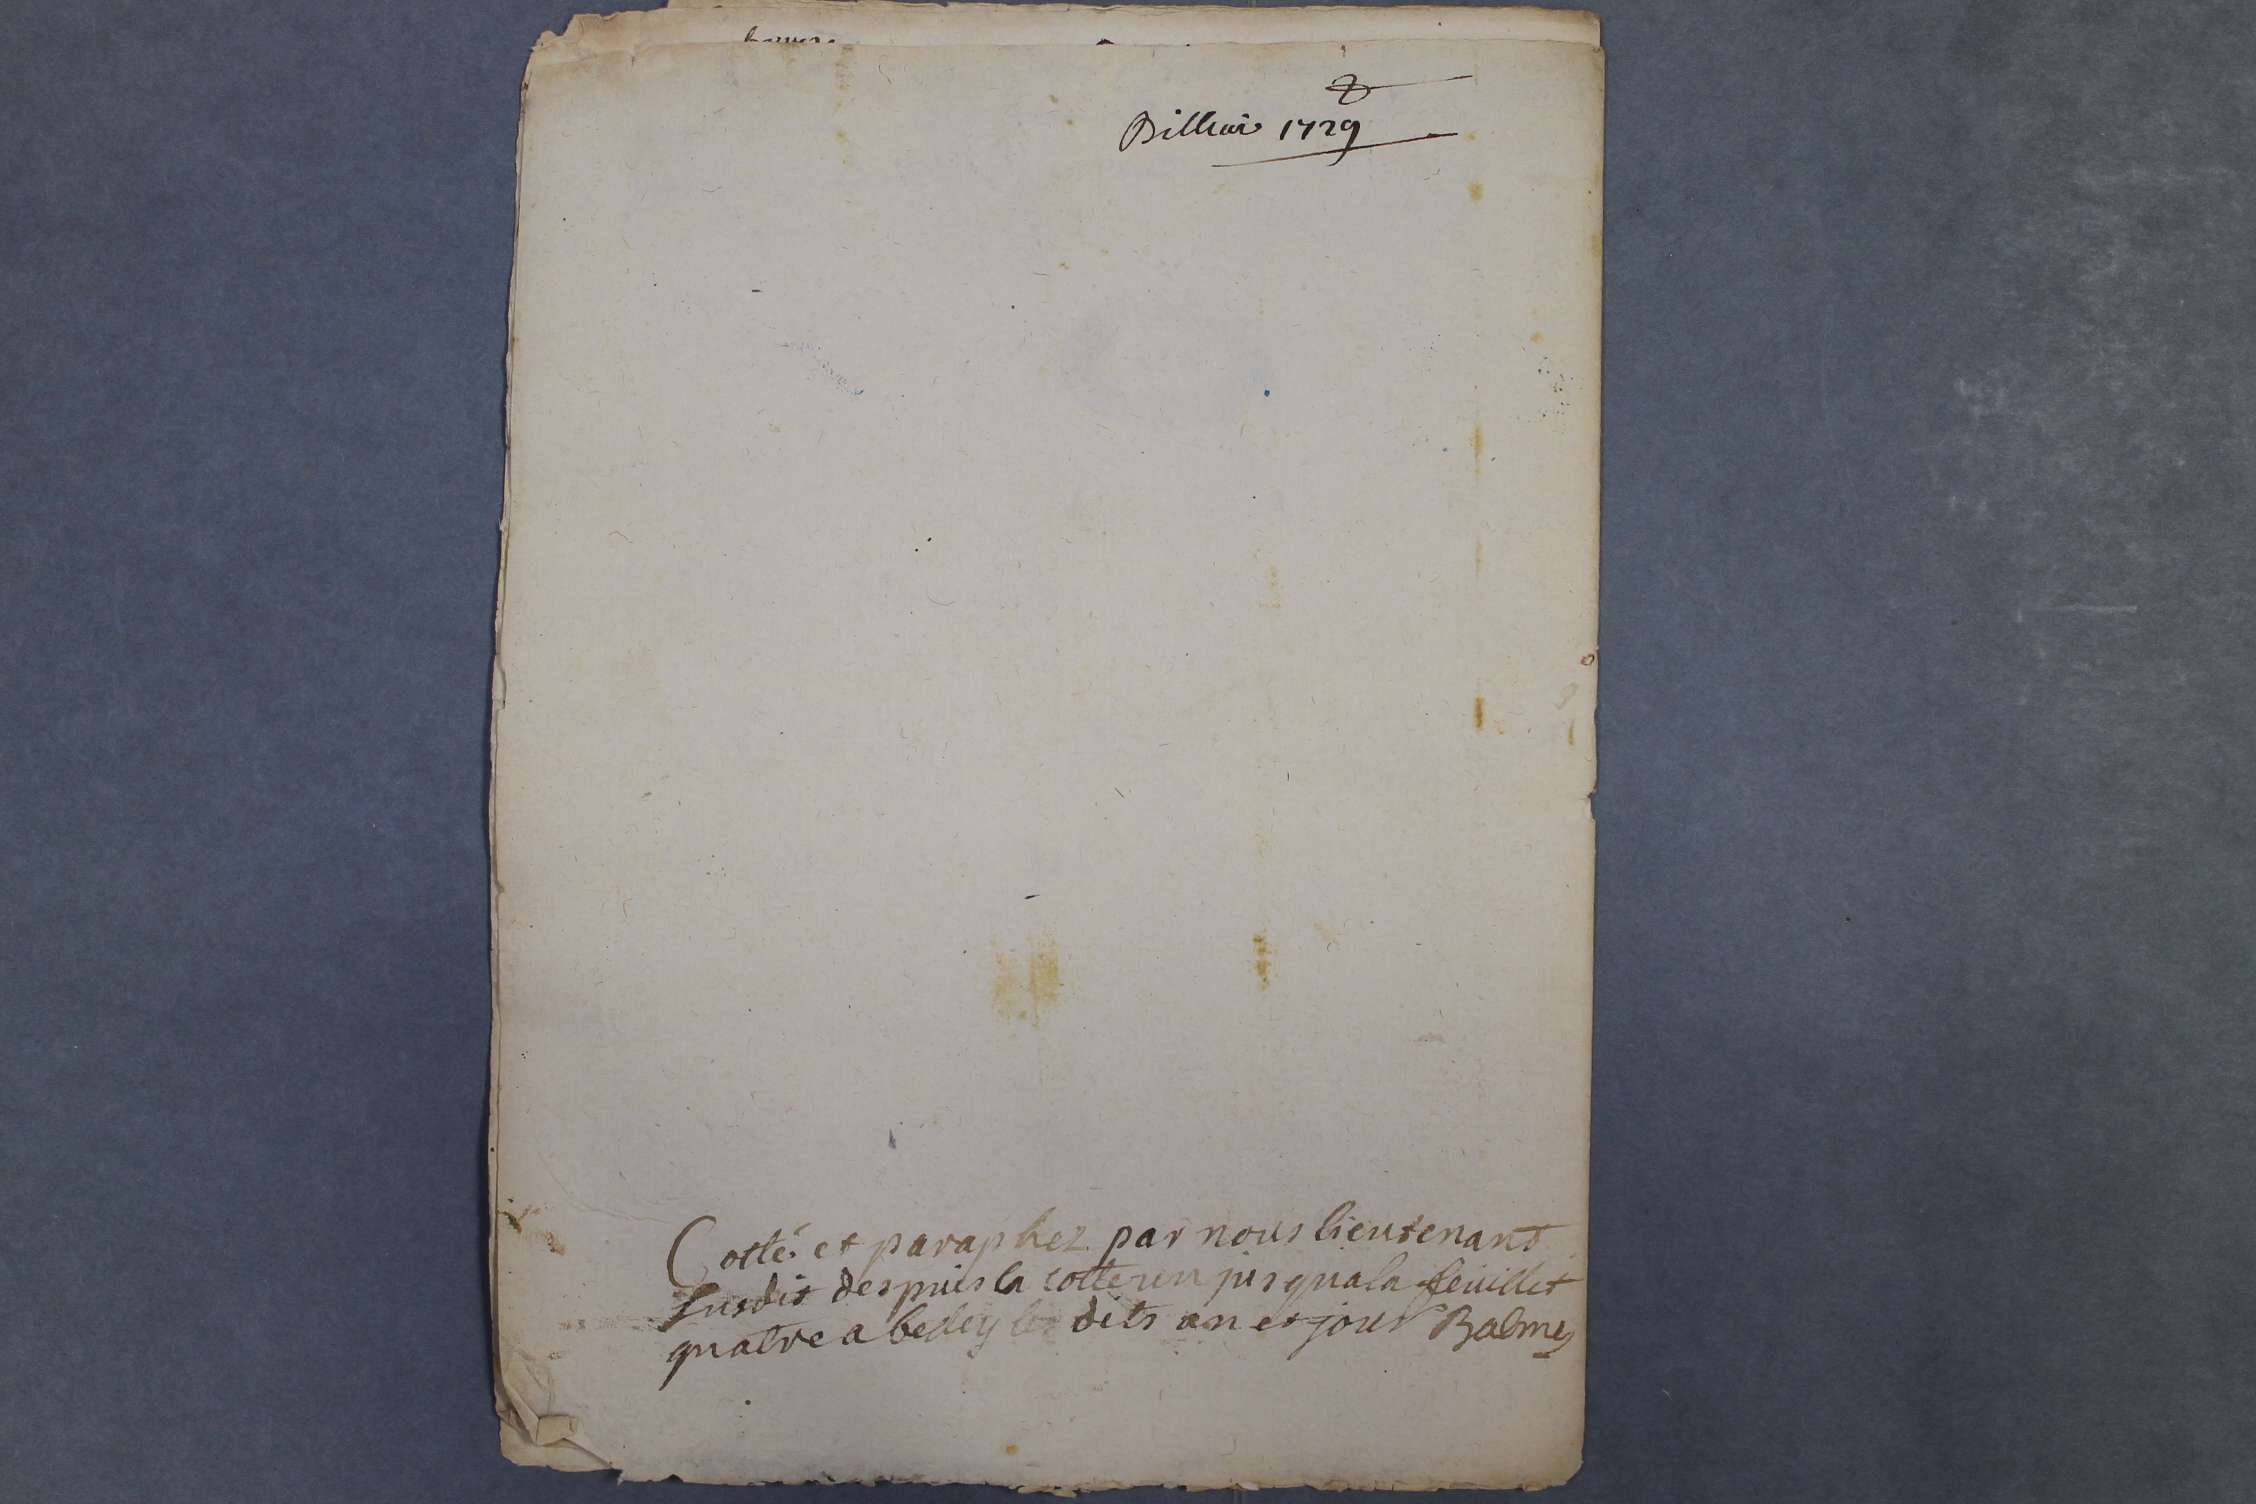 Billiai 1729
Cotté et paraphez par nous lieutenant
susdit despuis la cotte un jusquala feuillet
quatre a beday les dits an et jour Balmes